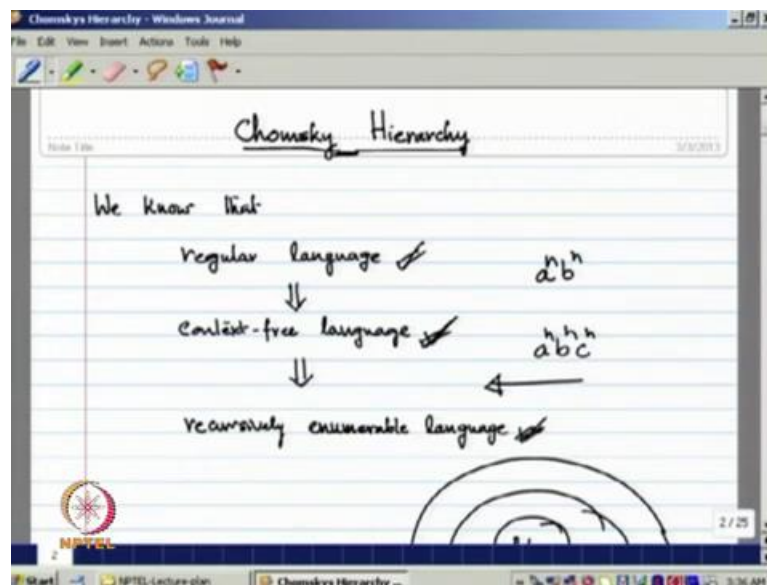 Chomskys Hierarchy - Windows Journal
File Edit View Insert Actions Tools Help
Chomsky Hierarchy
Note Title
3/3/2013
We know that
regular language
aⁿbⁿ
⇓
Context-free language
aⁿbⁿcⁿ
⇓
recursively enumerable language
NPTEL
2/25
2
Start
NPTEL-Lecture-plan
Chomskys Hierarchy ...
3:36 AM